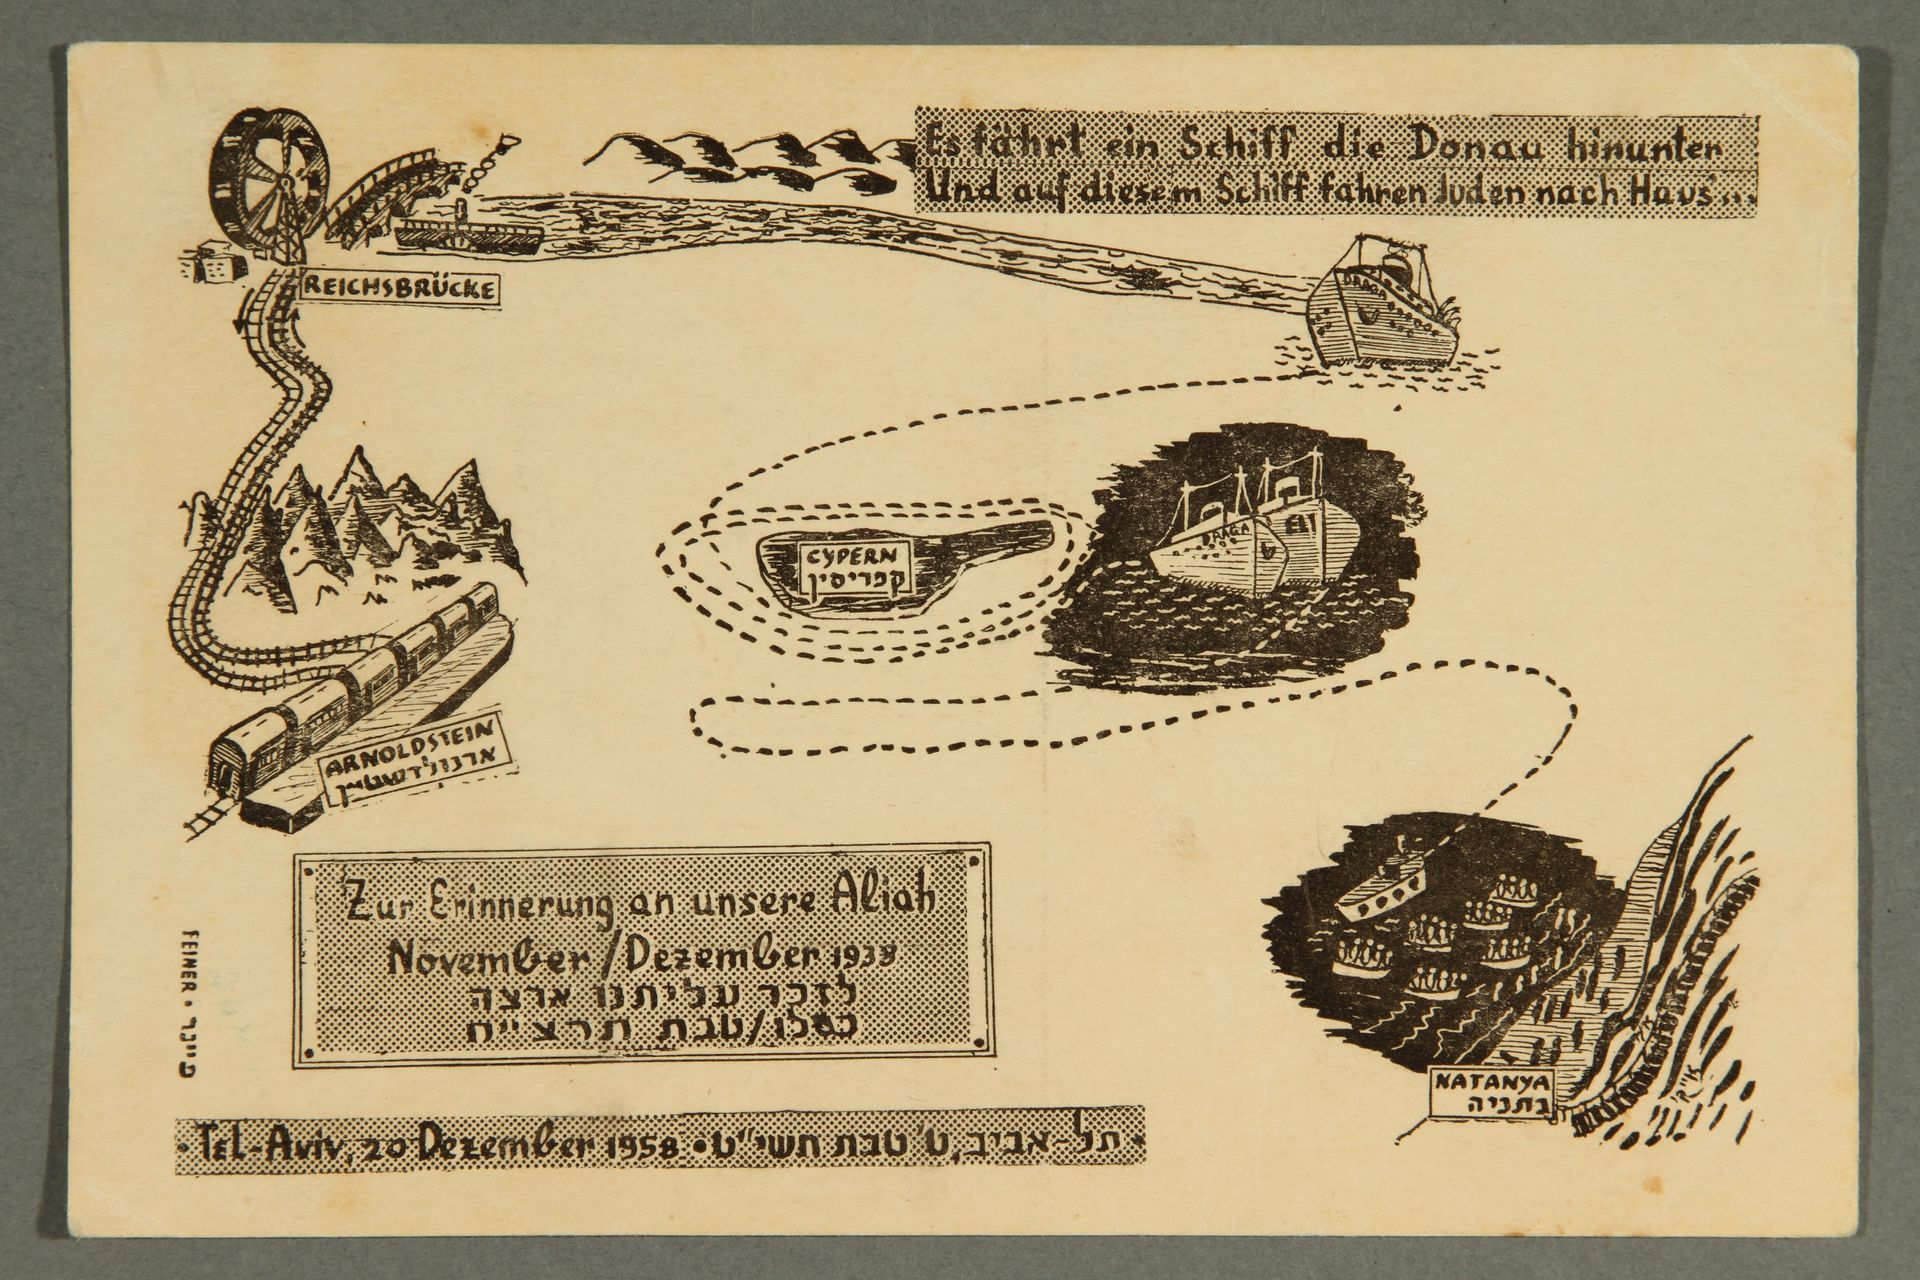 Es fährt ein Schiff die Donau hinunter
Und auf diesem Schiff fahren Juden nach Haus'...
REICHSBRÜCKE
DRAGA
DRAGA
ELI
CYPERN
קפריסין
ARNOLDSTEIN
ארנולדשטיין
Zur Erinnerung an unsere Aliah
November/Dezember 1938
לזכר עליתנו ארצה
כסלו/טבת תרצ"ח
NATANYA
נתניה
FEINER • פיינר
• Tel-Aviv, 20 Dezember 1958 • תל-אביב, ט' טבת תשי"ט •